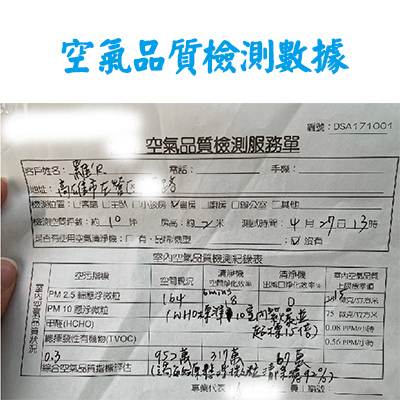 空氣品質檢測數據
編號：DSA171001
空氣品質檢測服務單
客戶姓名：羅 電話： 手機：
地址：高雄市左營區 路
檢測位置：□客廳 □主臥 □小孩房 ☑書房 □廚房 □辦公室 □其他
檢測空間坪數：約 10 坪 房高：約 2 米 測試時間：4 月 27 日 13 時
是否有使用空氣清淨機：□有，品牌/機型 ☑沒有
室內空氣品質檢測紀錄表
空污指標 空間現況 清淨機 空間淨化效率% 清淨機 出風口淨化效率% 室內空氣品質 上限標準值
6mins
PM 2.5 細懸浮微粒 164 8 0 微克/立方米
PM 10 懸浮微粒 (WHO標準 10 75 微克/立方米
甲醛(HCHO) 超標15倍) 0.08 PPM/小時
總揮發性有機物(TVOC) 0.56 PPM/小時
0.3 952萬 319萬 67萬
綜合空氣品質指標評估
室內空氣品質狀況
專業代表：